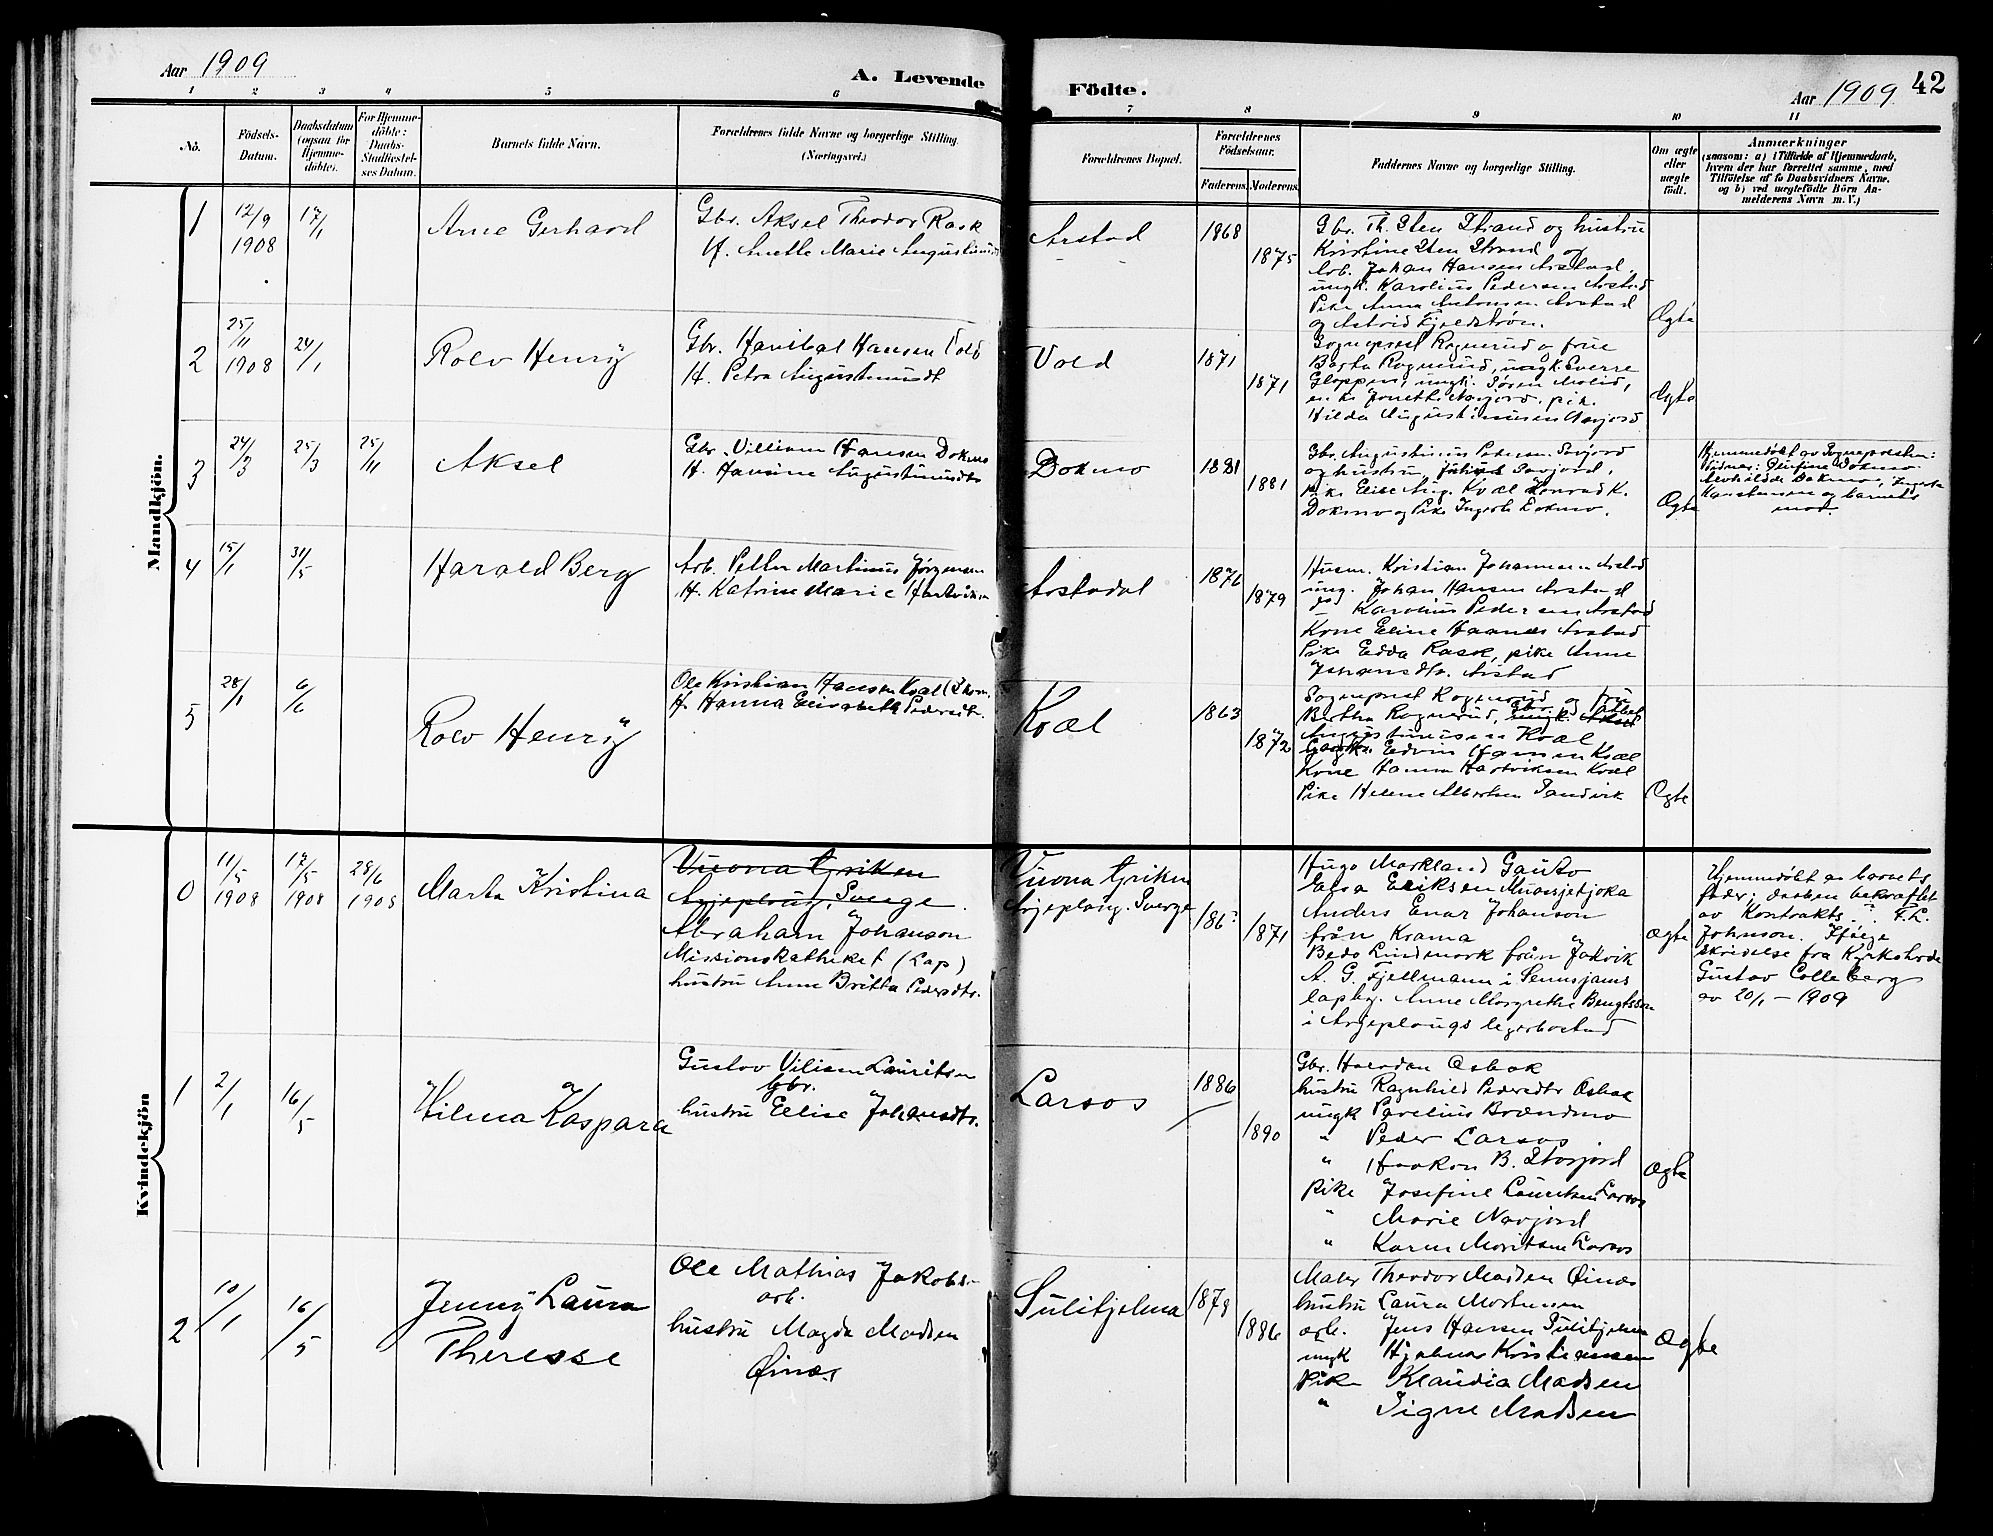 Aar 1909
A. Levende
Födte.
Aar 1909
42
1 2 3 4 5 6 7 8 9 10 11
No.
Födsels-
Datum.
Daabsdatum
(ogsaa for
Hjemme-
döbte).
For Hjemme-
döbte:
Daabs-
Stadfæstel-
ses Datum.
Barnets fulde Navn.
Forældrenes fulde Navne og borgerlige Stilling
(Næringsvei.)
Forældrenes Bopæl.
Forældrenes
Födselsaar.
Faderens.
Moderens.
Faddernes Navne og borgerlige Stilling.
Om ægte
eller
uægte
födt.
Anmærkninger
(saasom: a) i Tilfælde af Hjemmedaab,
hvem der har forrettet samme, med
Tilföielse af to Daabsvidners Navne.
og b) ved uegtefödte Börn An-
melderens Navn m. V.)
Mandkjön.
1
12/9
1908
17/1
Arne Gerhard
Gbr. Aksel Theodor Rask
H. Anette Marie Augustinusd
Arstad
1868
1875
Gbr. Th. Sten Strand og hustru
Kristine Sten Strand og
arb. Johan Hansen Arstad,
ungk. Karolius Pedersen Arstad
Pike Anna Antonsen Arstad
og Astrid Fjeldstrøm.
Ægte
2
25/11
1908
24/1
Rolv Henry
Gbr. Hanibal Hansen Vold
H. Petra Augustinusdt
Vold
1871
1871
Sogneprest Rognerud o frue
Berta Rognerud, ungk. Sverre
Gloppen, ungk. Søren Molid,
pik.
Hilda Augustinussen Navjord
Ægte
3
24/3
25/3
25/11
Aksel
Gbr. Villiam Hansen Dokmo
H. Hansine Augustinusdtr
Dokmo
1881
1881
Gbr. Augustinus Pedersen
og hustru
pike Elise Aug. Kvæl Konrad K.
Dokmo og Pike Ingerb. Dokmo.
Ægte
Hjemmedøbt av Sogneprestem:
Vidner: Dokmo
Dokmo,
og barnets
mod.
4
15/1
31/5
Harald Berg
Arb. Petter Martinus Jørgensen
H. Katrine Marie Hartviksn
Arstadal
1876
1879
Husm. Kristian Johannesen Arstad
ung. Johan Hansen Arstad
do Karolius Pedersen Arstad
Kone Eline Hannes Arstad
Pike Edda Rask, pike Anne
Johansdtr. Arstad
5
28/1
6/6
Rolv Henry
Ole Kristian Hansen Kvæl
H. Hanna Elisabeth Pedersdtr.
Kvæl
1863
1872
Sogneprest Rognerud og frue
Bertha Rognerud,
Augustinusen Kvæl
Edvin Hansen Kvæl
Kone Hanna Hartviksen Kvæl
Pike Helene Albertsen Sandvik
Ægte
Kvindekjön
0
11/5
1908
17/5
1908
28/6
1908
Marta Kristina
Vuona Griken
Arjeploug, Sverge
Abraham Johanson
Missionskatheket (Lap)
hustru Anna Britta Pedersdtr.
Vuona Griken
Arjeplaug. Sverge
186?
1871
Hugo Markland Gauto
Elsa Eriksen
Anders Enar Johanson
från Krama
Beda Lindmark från Jäkvik
A. G. Fjellmann i Sennsjams
lapby. Anne Margrethe Bengtsson
i Arjeplougs legerbostad
Ægte
Hjemmedøbt av barnets
fader; daaben bekræftet
av Kontrakts.: F. L.
Johnson. Ifølge
skrivelse fra
Gustav Calleberg
av 20/1 – 1909
1
2/1
16/5
Hilma Kaspara
Gustav Viliam Lauritsen
Gbr.
hustru Elise Johansdtr.
Larsos
1886
1890
Gbr. Halvdan Osbak
hustru Ragnhild Pedersdtr Osbak
ungk Parelius Brændmo
" Peder Larsos
" Haakon B. Storjord
Pike Josefine Lauritsen Larsos
" Marie Navjord
" Karen Moritsen Larsos
Ægte
2
10/1
16/5
Jenny Laura
Theresse
Ole Mathias Jakobs-
arb.
hustru Magda Madsen
Øines
Sulitjelma
1879
1886
Maler Theodor Madsen Øines
hustru Laura Mortensen
arb. Jens Hansen Sulitjelma
ungk Hjalmar Kristiansen
Pike Klaudia Madsen
" Signe Madsen
Ægte